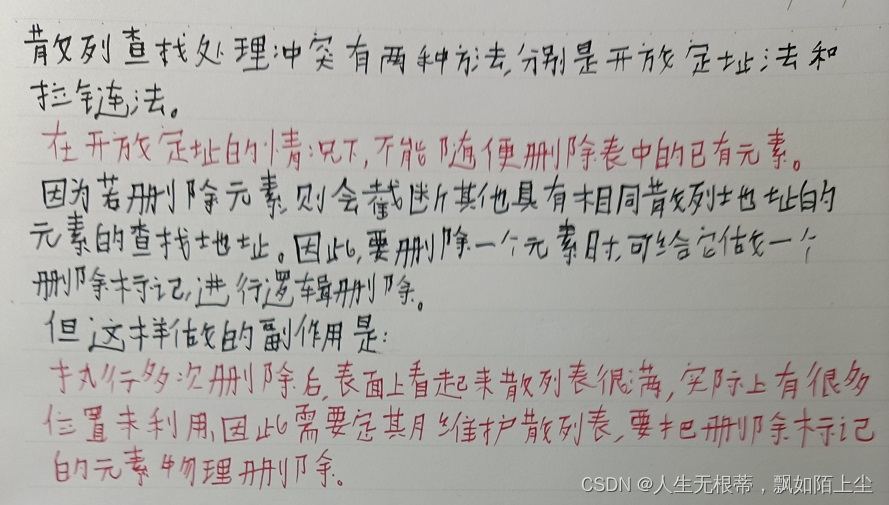 散列查找处理冲突有两种方法,分别是开放定址法和
拉链法。
在开放定址的情况下,不能随便删除表中的已有元素。
因为若删除元素,则会截断其他具有相同散列地址的
元素的查找地址。因此,要删除一个元素时,可给它做一个
删除标记,进行逻辑删除。
但这样做的副作用是:
执行多次删除后,表面上看起来散列表很满,实际上有很多
位置未利用,因此需要定期维护散列表,要把删除标记
的元素物理删除。
CSDN @人生无根蒂,飘如陌上尘